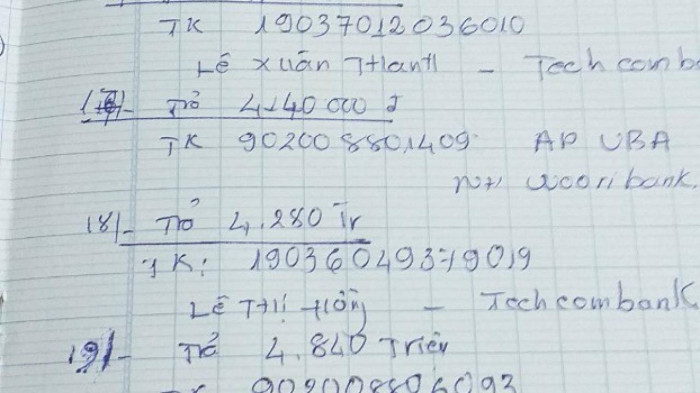 TK 19037012036010
Lê Xuân Thanh - Techcomb
17/- Trả 4.140 000 đ
TK 902008801409 AP UBA
NH Wooribank.
18/- Trả 4.280 Tr
TK: 19036049379019
Lê Thị Hồng - Techcombank
19/- Trả 4.840 Triệu
TK 902008806093